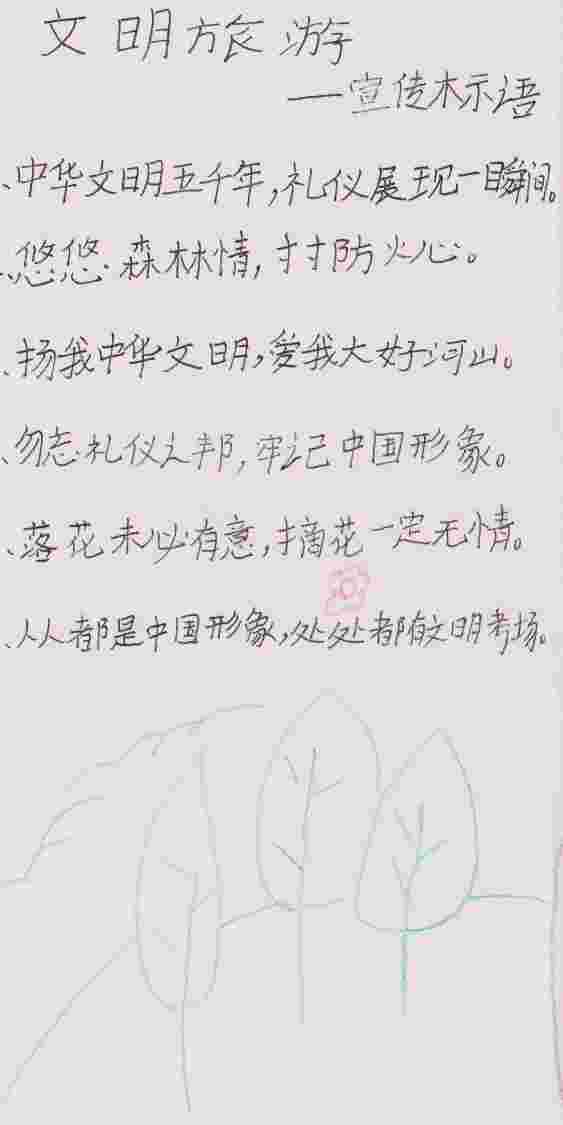 文明旅游
——宣传标示语
、中华文明五千年,礼仪展现一瞬间。
、悠悠森林情,寸寸防火心。
、扬我中华文明,爱我大好河山。
、勿忘礼仪之邦,牢记中国形象。
、落花未必有意,摘花一定无情。
、人人都是中国形象,处处都有文明考场。